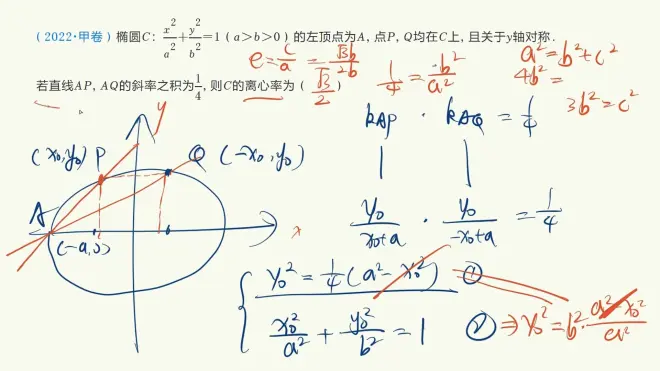 (2022·甲卷) 椭圆C: x²/a²+y²/b²=1(a>b>0)的左顶点为A,点P,Q均在C上,且关于y轴对称.
若直线AP,AQ的斜率之积为1/4,则C的离心率为( √3/2 )
e=c/a=√3b/2b
1/4=b²/a²
a²=b²+c²
4b²=
3b²=c²
y
(x₀,y₀) P
Q (-x₀,y₀)
A
(-a,0)
x
kAP · kAQ = 1/4
y₀/(x₀+a) · y₀/(-x₀+a) = 1/4
y₀²=1/4(a²-x₀²) ①
x₀²/a²+y₀²/b²=1 ② ⇒ y₀²=b²·(a²-x₀²)/a²